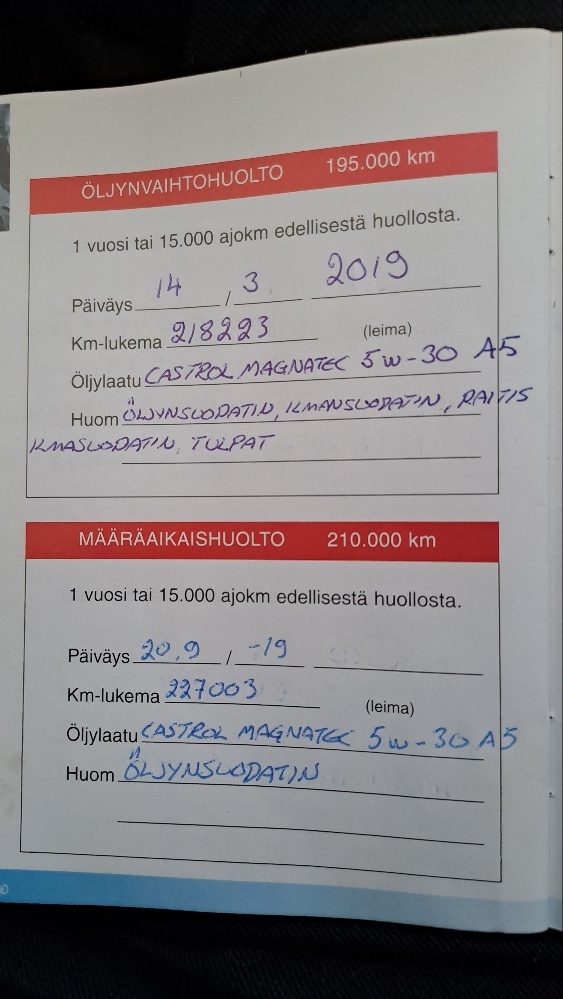 ÖLJYNVAIHTOHUOLTO 195.000 km
1 vuosi tai 15.000 ajokm edellisestä huollosta.
Päiväys 14 / 3 2019
Km-lukema 218223 (leima)
Öljylaatu CASTROL MAGNATEC 5W-30 A5
Huom ÖLJYNSUODATIN, ILMANSUODATIN, RAITIS
ILMASUODATIN, TULPAT
MÄÄRÄAIKAISHUOLTO 210.000 km
1 vuosi tai 15.000 ajokm edellisestä huollosta.
Päiväys 20.9 / -19
Km-lukema 227003 (leima)
Öljylaatu CASTROL MAGNATEC 5W-30 A5
Huom ÖLJYNSUODATIN